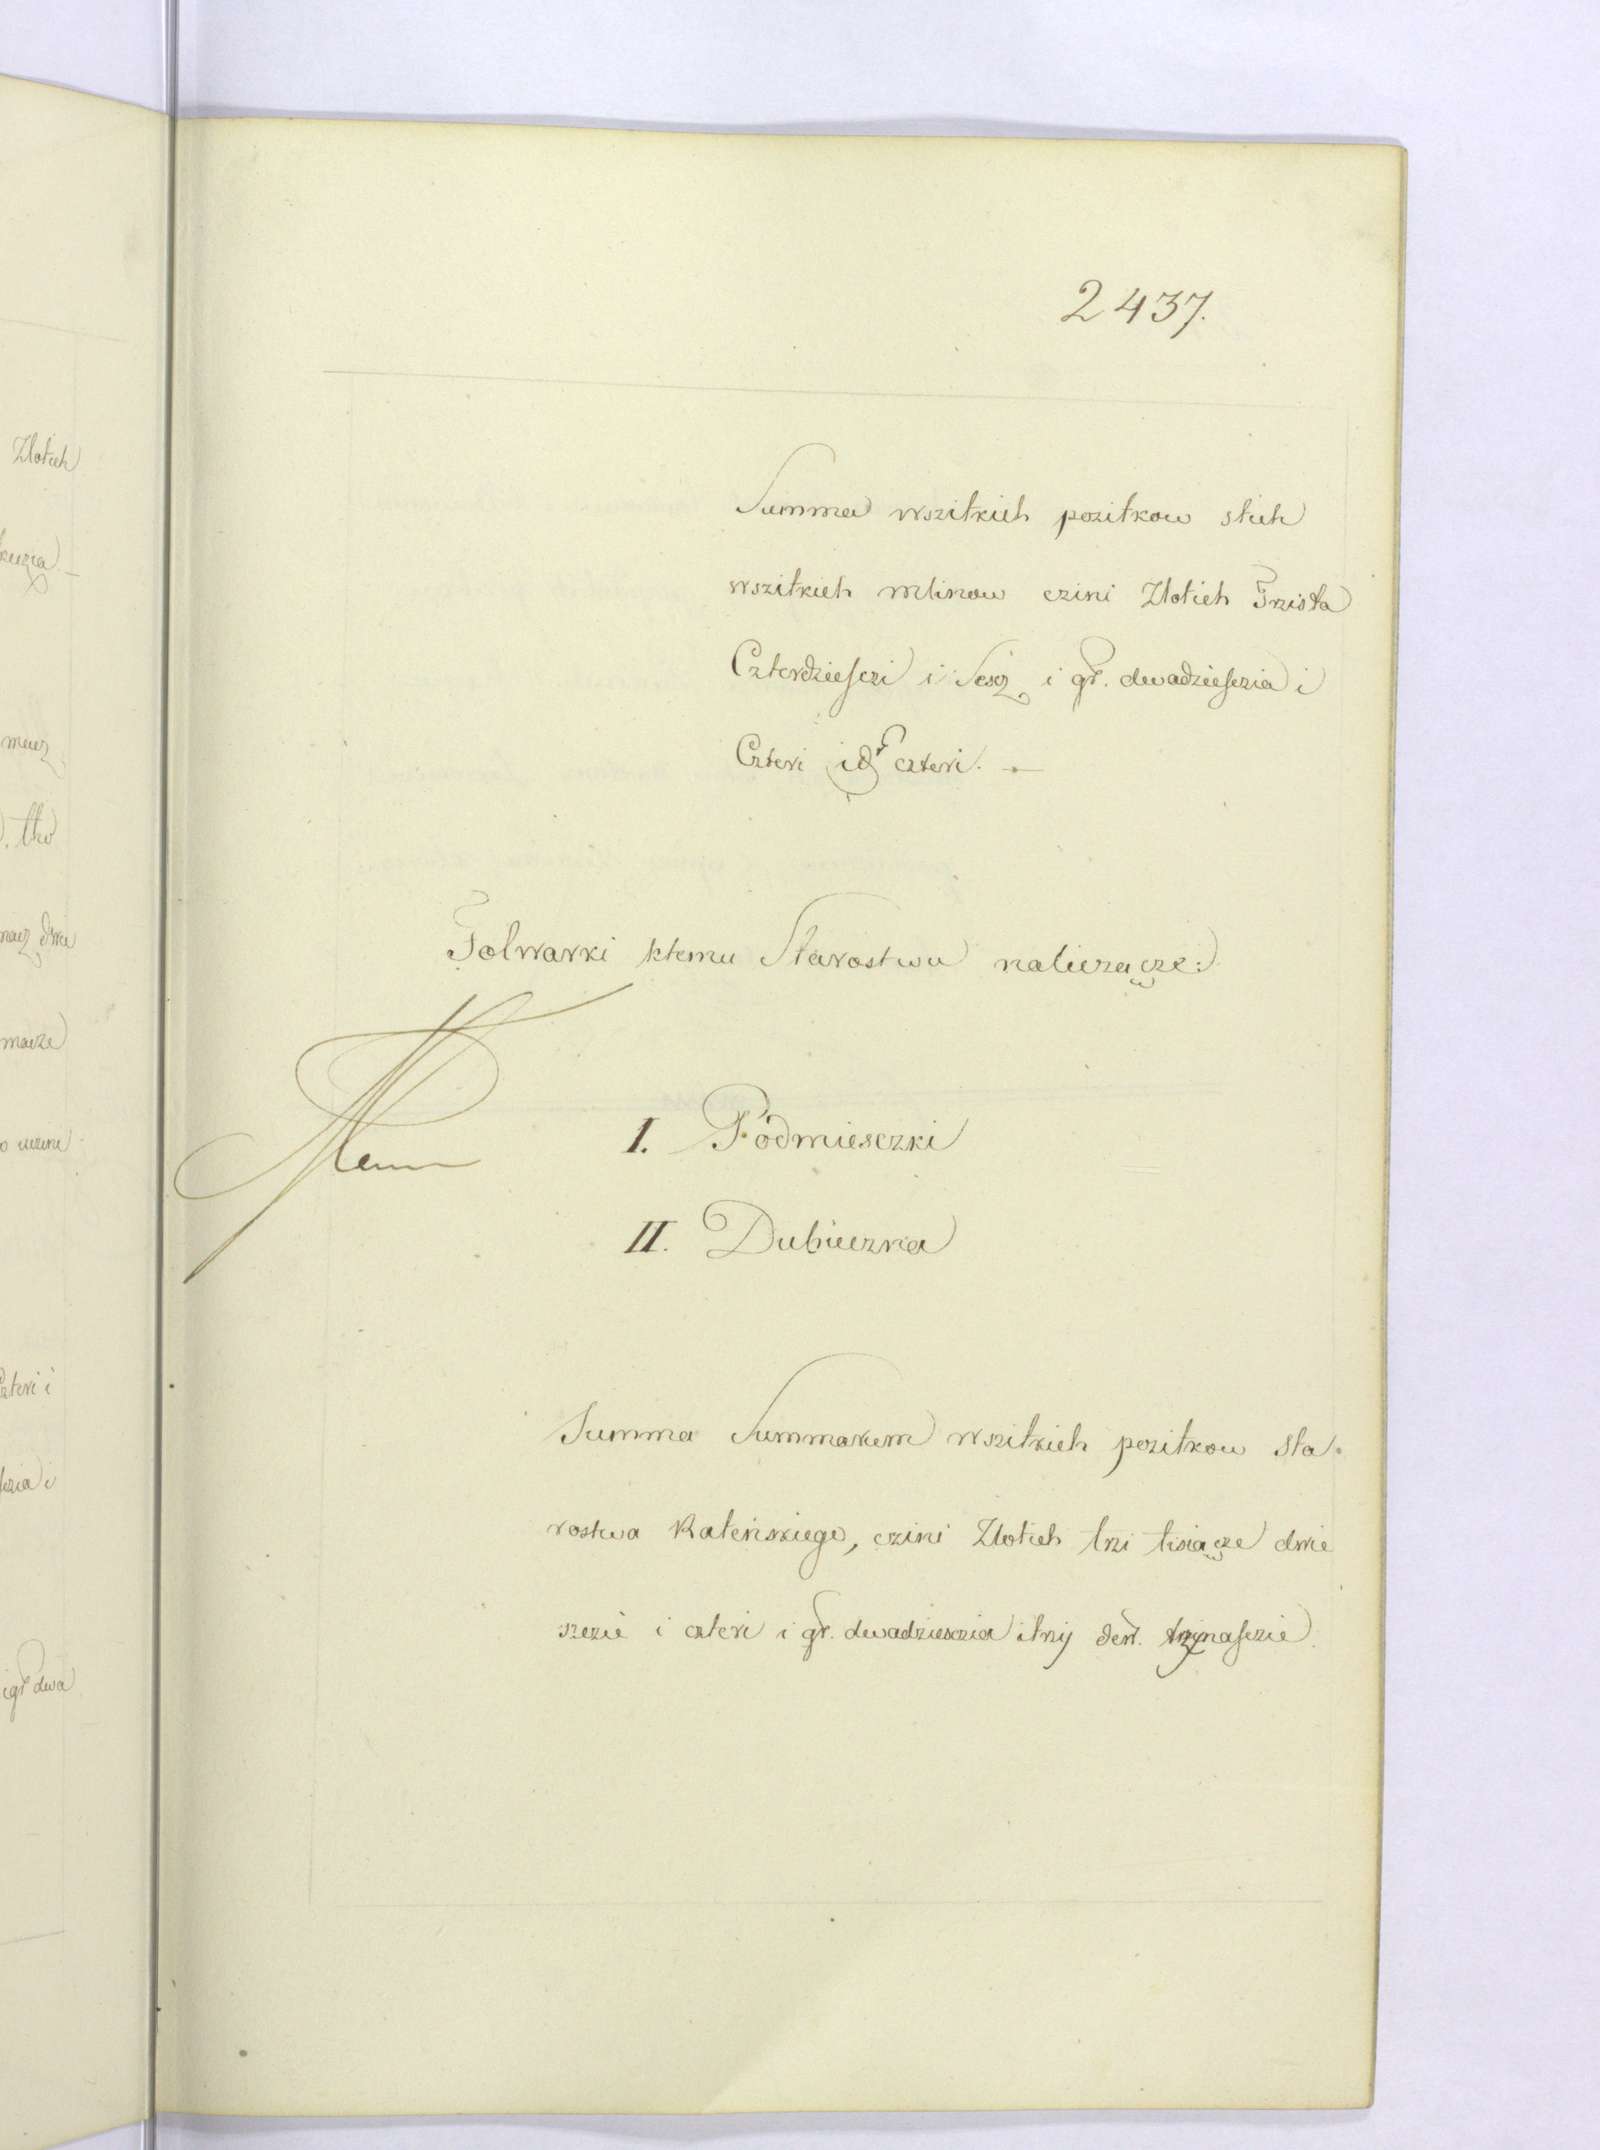 2437.
Złotich
Summa wszitkich pozitkow stich
wszitkich mlinow czini Złotich Trzista
Czterdziesczi i Sescz i gr. dwadziesczia i
Czteri i d czteri.
Folwarki ktemu Starostwu naliczącze:
I. Podmiesczki
II. Dubieczna
Summa Summarum wszitkich pozitkow sta-
rostwa Ratenskiego, czini Złotich trzi tisiącze dwie
sczie i czteri i gr. dwadziesczia i trzy den. trzynasczie.
macze
czteri i
i gr dwa